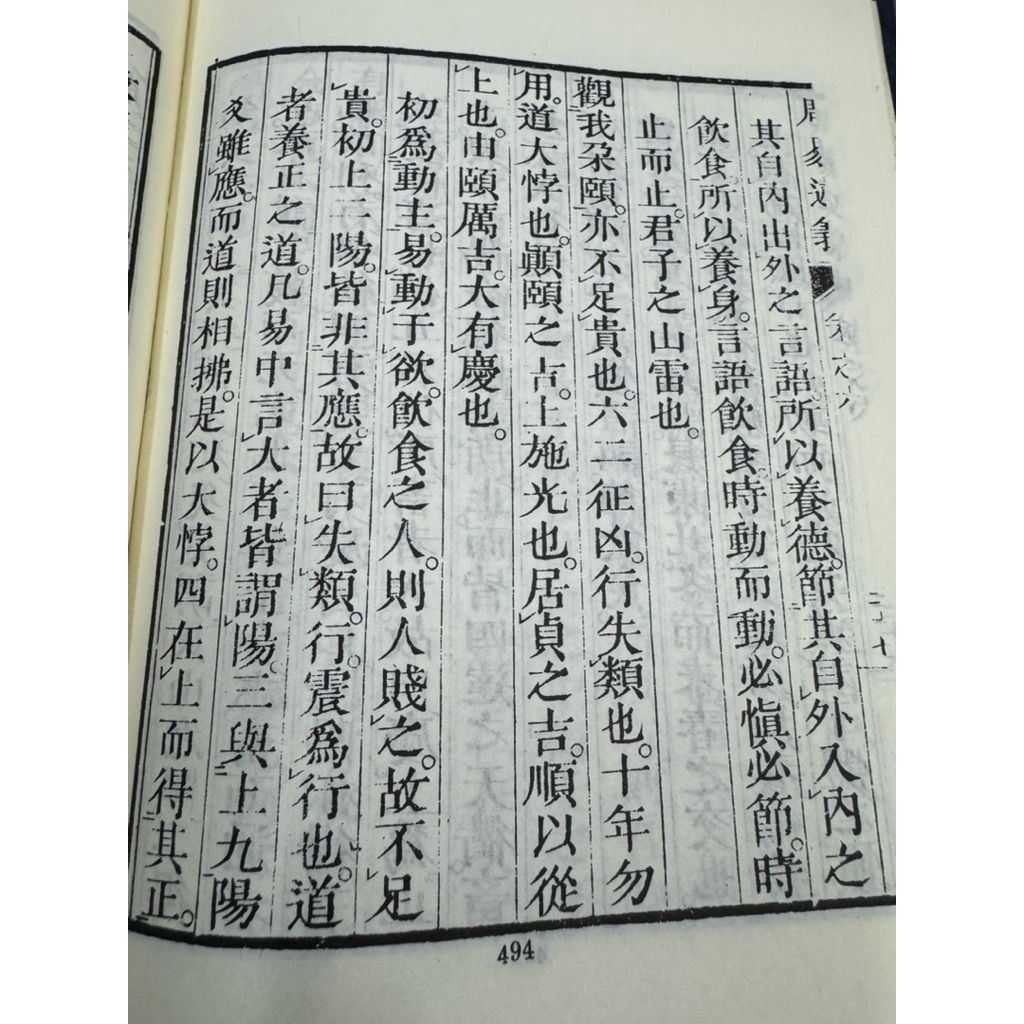 周易
其自內出外之言語。所以養德。節其自外入內之
飲食。所以養身。言語飲食。時動而動。必愼必節。時
止而止。君子之山雷也。
觀我朵頤。亦不足貴也。六二征凶。行失類也。十年勿
用。道大悖也。顚頤之吉。上施光也。居貞之吉。順以從
上也。由頤厲吉。大有慶也。
初爲動主。易動于欲。飲食之人。則人賤之。故不足
貴。初上二陽。皆非其應。故曰失類。行。震爲行也。道
者養正之道。凡易中言大者皆謂陽。三與上九陽
爻雖應。而道則相拂。是以大悖。四在上而得其正。
494